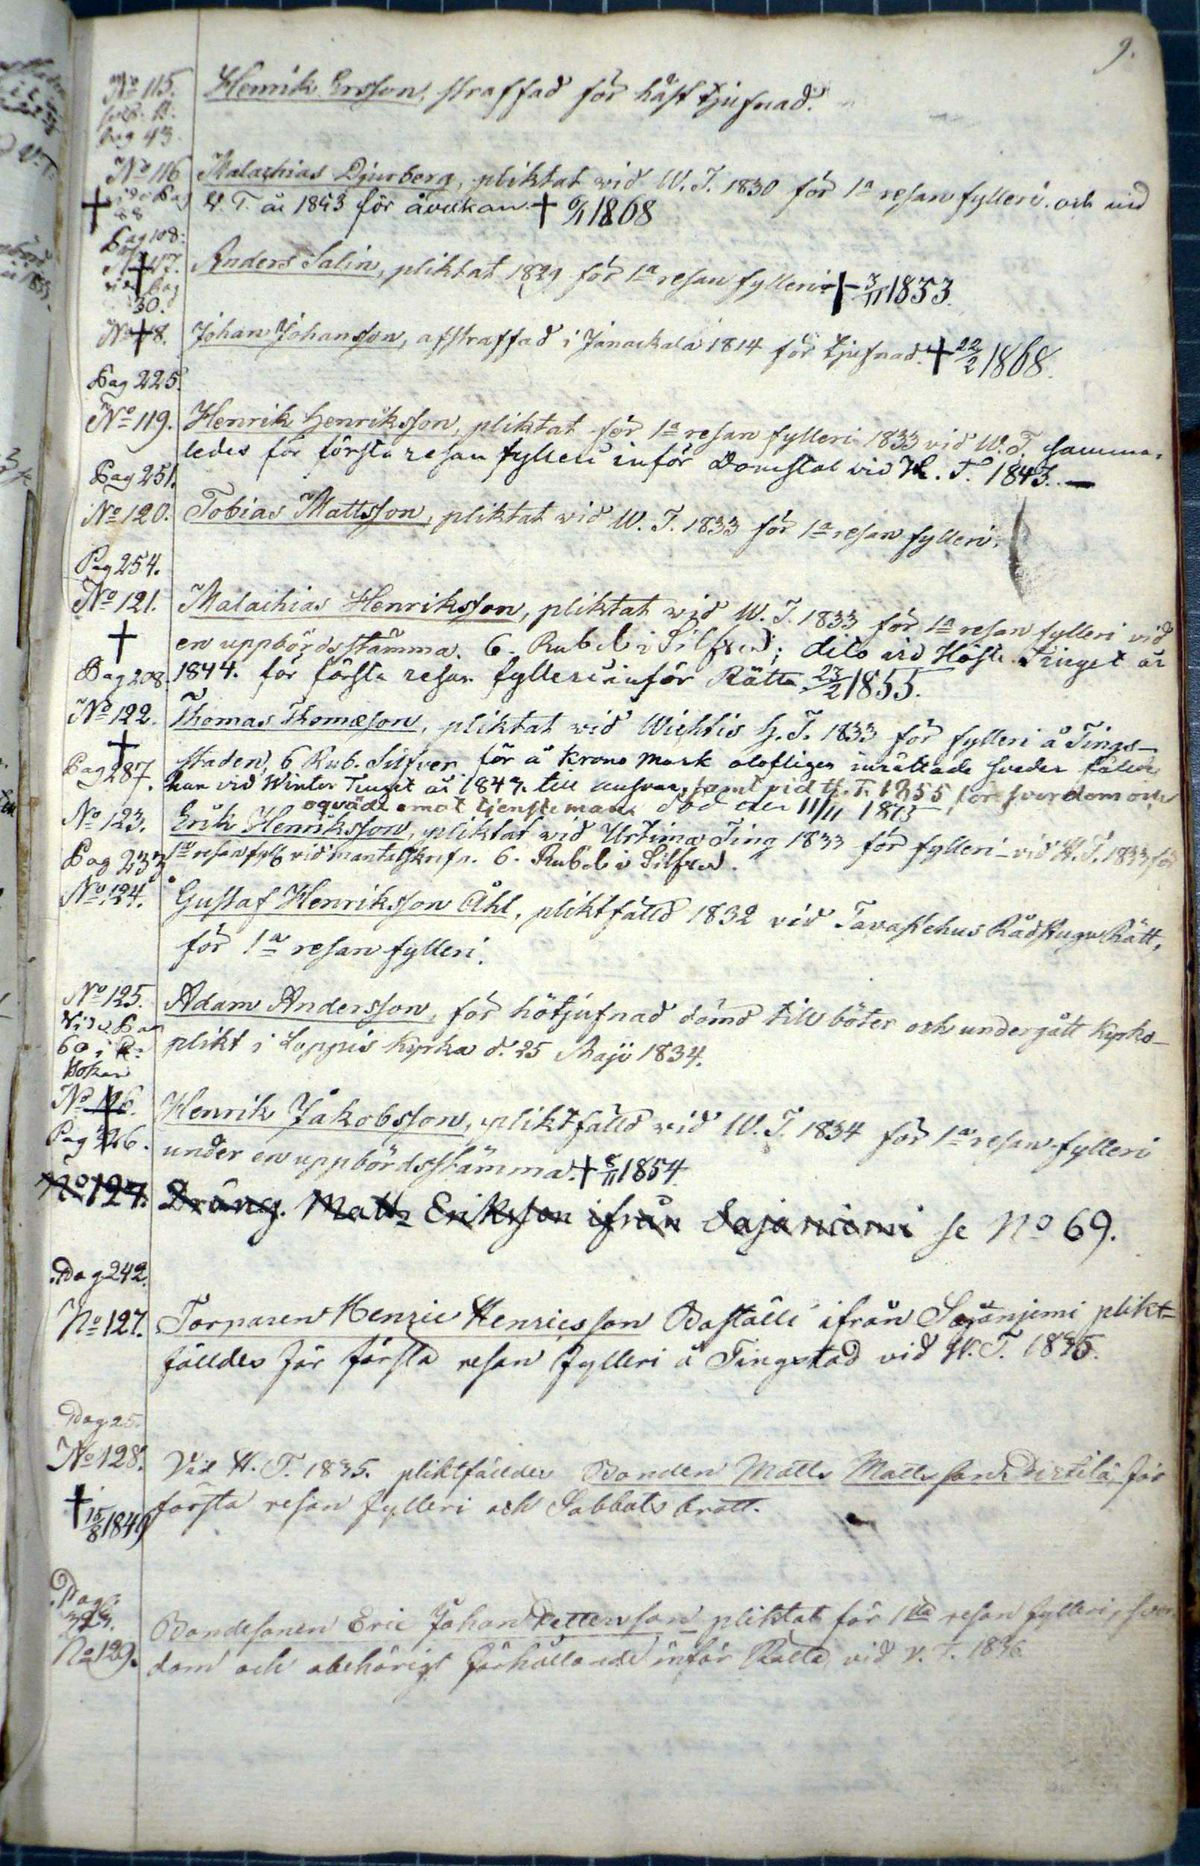 9.
No 115.
pag 43
Henrik Ersson, straffad för häst tjufnad.
No 116
vide Pag
88
Malachias Djurberg, pliktat vid W. T. 1830 för 1a resan fylleri. och vid
V. T. år 1843 för åverkan † 1868
Pag 108:
No 117.
vide Pag
30.
Anders Salin, pliktat 1829 för 1a resan fylleri † 3/11 1853.
No 118.
Johan Johansson, afstraffad i Janackala 1814 för tjufnad. † 22/2 1868.
Pag 225.
No 119.
Henrik Henriksson, pliktat för 1a resan fylleri 1833 vid W. T. samma-
ledes för första resan fylleri inför Domstol vid W. T. 1843. —
Pag 251.
No 120.
Tobias Mattsson, pliktat vid W. T. 1833 för 1a resan fylleri.
Pag 254.
No 121.
†
Malachias Henriksson, pliktat vid W. T. 1833 för 1a resan fylleri vid
en uppbördsstämma. 6. Rubel i Silfver; dito vid Höste Tinget år
Pag 208.
1844. för första resan fylleri inför Rätta 23/2 1855.
No 122.
†
Thomas Thomæson, pliktat vid Wichtis H. T. 1833 för fylleri å Tings-
staden, 6 Rub. Silfver för å Krono Mark olofligen inrättade sveder fälld
Pag 287.
han vid Winter Tinget år 1847. till ansvar, samt vid H. T. 1855 för svordom och
oqväde emot tjensteman död den 11/11 1873
No 123.
Erik Henriksson, pliktat vid Urtima Ting 1833 för fylleri – vid W. T. 1833 för
1a resan fyll vid mantalskrifn. 6. Rubel i Silfver.
Pag 233
No 124.
Gustaf Henriksson Åhl, pliktfälld 1832 vid Tavastehus RådstuguRätt,
för 1a resan fylleri.
No 125.
Vide Pag
60 i
Boken
Adam Andersson, för hötjufnad dömd till böter och undergått kyrko-
plikt i Loppis kyrka d. 25 Maji 1834.
No 126.
Pag 226.
Henrik Jakobsson, pliktfälld vid W. T. 1834 för 1a resan fylleri
under en uppbördsstämma. † 11 1854.
No 127.
Dräng. Matts Eriksson ifrån Sajaniemi se No 69.
Pag 242.
No 127.
Torparen Henric Henricsson Boställi ifrån Sajaniemi plikt=
fälldes för första resan fylleri å Tingstad vid W. T. 1835.
Pag 25.
No 128.
Vid W. T. 1835. pliktfälldes Bonden Matts Mattsson Pirtilä för
första resan fylleri och Sabbats brott.
† 15/8 1849
Pag.
323.
No 129.
Bondesonen Eric Johan Pettersson pliktat för 1sta resan fylleri, svor
dom och obehörigt förhållande inför Rätta vid V. T. 1836